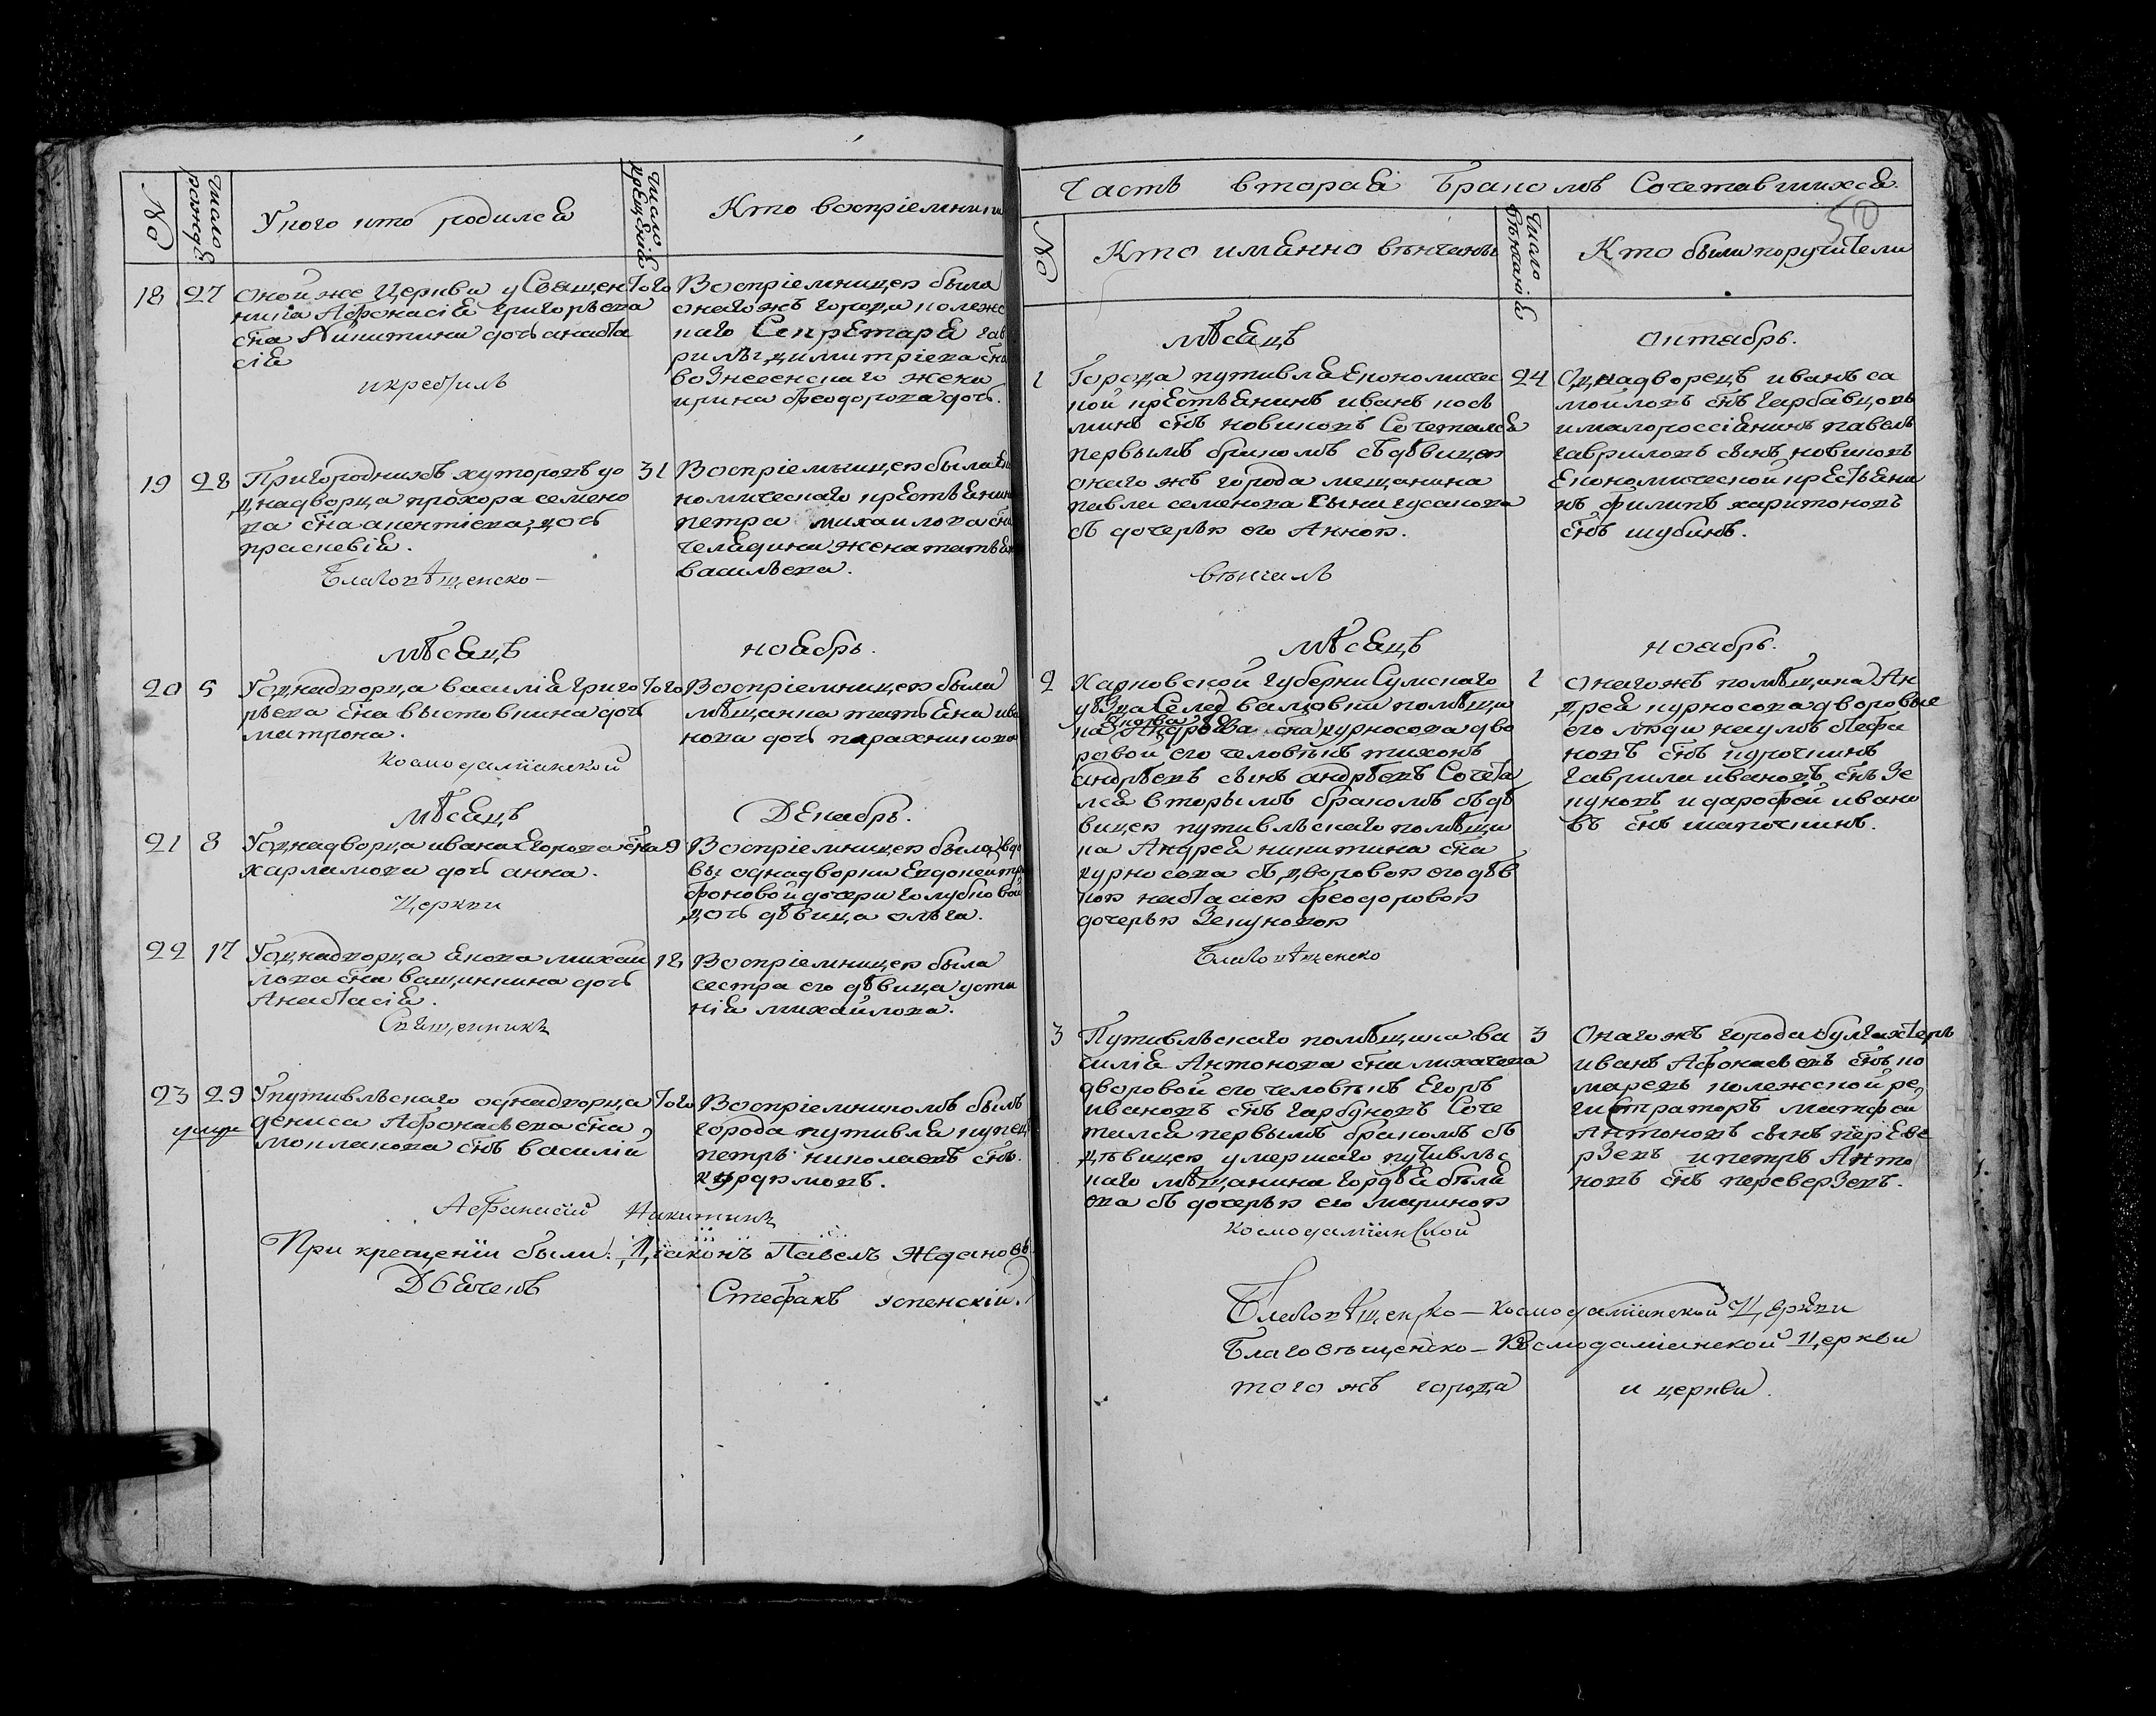 №
Число рожде
У кого кто родился
Число крещения
Кто восприемники
18 27 Оной же церкви у Священ Того
ника Афонасия Григорьева
сна Никитина дочь анаста
сия
икрестилъ
Восприемницею была
оногожъ города колежс
каго Секретаря гав
рилы димитриева сна
вознесенскаго жена
ирина феодорова дочь.
19 28 Пригороднихъ хуторовъ уо
днадворца прохора семено
ва сна дочь
прасковия.
Благовѣщенско-
31 Восприемницею была
номическаго крестьянина
петра михаилова сна
челядина жена татья
васильева.
мѣсяцъ ноябрь.
20 5 Уоднадворца василия григо Того
рьева сна выстовкина дочь
матрона.
Космодаміанской
Восприемницею была
мѣщанка татьяна ива
нова дочь
мѣсяцъ Декабрь.
21 8 Уоднадворца ивана Егорова сна 9
харламова дочь анна.
Церкви
Восприемницею была вдо
вы однадворки Евдокеи
фоновой дочери голубковой
дочь дѣвица олга.
22 17 Уоднадворца Якова михаи 18
лова сна дочь
Анастасия.
Священникъ
Восприемницею была
сестра его дѣвица усти
ния михайлова.
23 29 Упутивльскаго однадворца Того
дениса Афонасьева сна
снъ василий
Восприемникомъ былъ
города путивля купец
петръ николаевъ снъ.
Афанасій Никитинъ
При крещеніи были: Діаконъ Павелъ Ждановъ
Дьячекъ Стефанъ Успенскій.
Часть вторая Бракомъ Сочетавшихся.
50
№
Кто имянно вѣнчаны
Число вѣнчания
Кто были поручители
мѣсяцъ октябрь.
1 Города путивля Економичес 24
кой крестьянинъ иванъ косъ
минъ снъ новиковъ Сочетался
первымъ бракомъ съдѣвицею
оногожъ города мещанина
павла семенова сына гусакова
съ дочерью его Анною.
вѣнчалъ
Однадворецъ иванъ са
мойловъ снъ
ималороссиянинъ павелъ
гавриловъ сынъ новиковъ
Економической крестьяни
нъ филипъ харитоновъ
снъ шубинъ.
мѣсяцъ ноябрь.
2 Харковской губерни Сумскаго 1
уѣзда помѣщи
ка сна курносова дво
ровой его человѣкъ тихонъ
андрѣевъ сынъ андрѣевъ Сочета
лся вторымъ бракомъ съдѣ
вицею путивльскаго помѣщи
ка Андрея никитина сна
курносова съ дворовою его дѣв
кою настасіею феодоровою
дочерью Зекуновою
Благовѣщенско
Онагожъ помѣщика Ан
дрея курносова дворовые
его люди наумъ стефа
новъ снъ
гаврила ивановъ снъ Зе
куновъ и дарофей ивано
въ снъ шапочкинъ.
3 Путивльскаго помѣщика ва 3
силия Антонова сна лихачева
дворовой его человѣкъ Егоръ
ивановъ снъ гарбуновъ Соче
тался первымъ бракомъ съ
дѣвицею умершаго путивльс
каго мѣщанина гордѣя бѣля
ева съ дочерью его мариною
космодаміанской
Онагожъ города булгахтеръ
иванъ Афонасьевъ снъ по
маревъ колежской ре
гистраторъ матфей
Антоновъ сынъ переве
рзевъ ипетръ Анто
новъ снъ переверзевъ.
Благовѣщенско-космодаміанской Церкви
Благовѣщенско-Космодаміанской Церкви
тогожъ города и церкви.